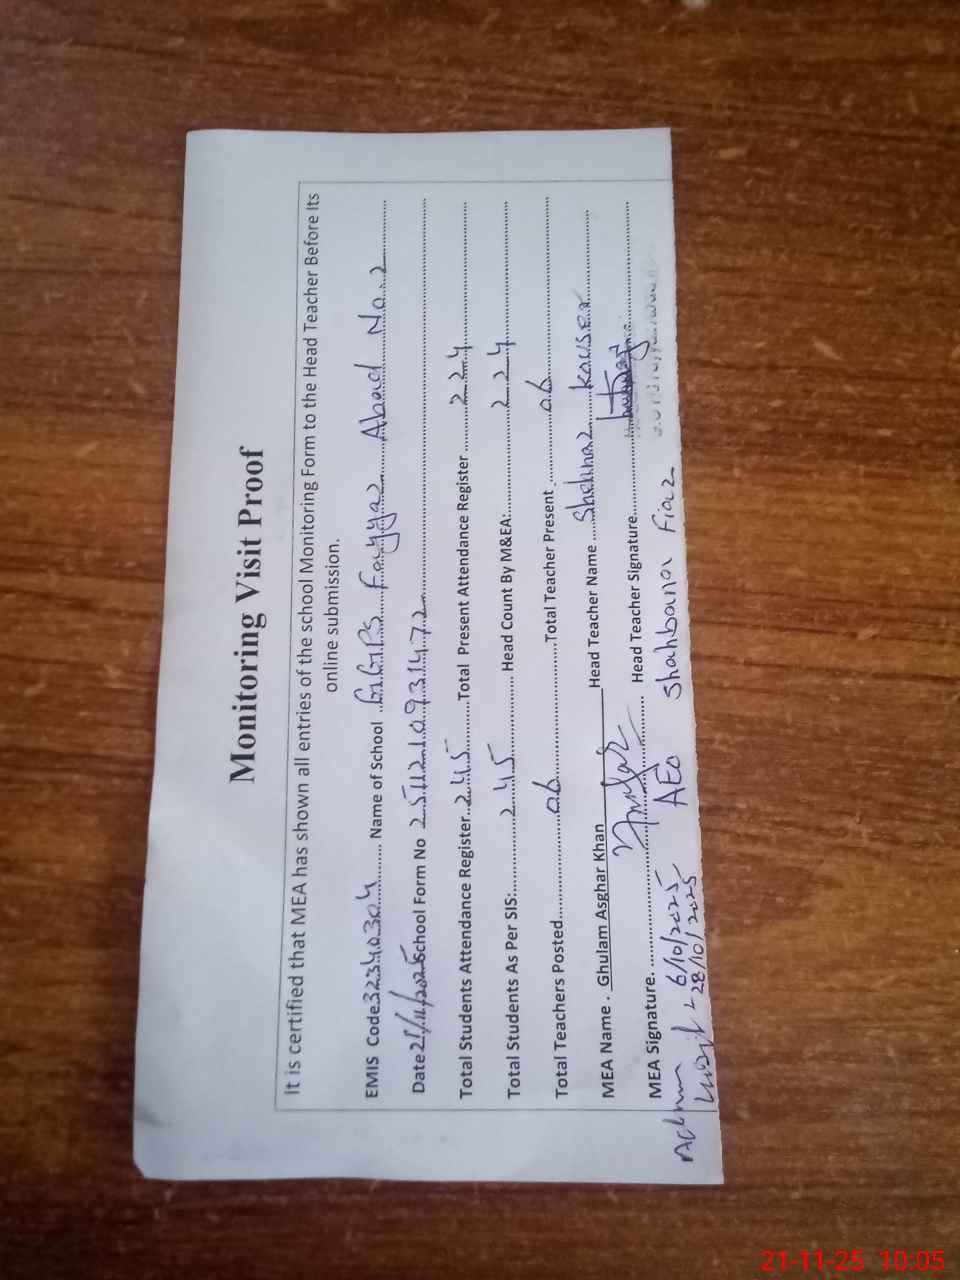 Monitoring Visit Proof
It is certified that MEA has shown all entries of the school Monitoring Form to the Head Teacher Before Its
online submission.
EMIS Code 32340304 Name of School GGPS Fayyaz Abad No. 2
Date 21/11/2025 School Form No 2511210931472
Total Students Attendance Register 245 Total Present Attendance Register 224
Total Students As Per SIS: 245 Head Count By M&EA: 224
Total Teachers Posted 06 Total Teacher Present 06
MEA Name . Ghulam Asghar Khan Head Teacher Name Shehnaz Kauser
MEA Signature. Head Teacher Signature
6/10/2025 AEO Shahbano Fiaz
Visit 28/10/2025
21-11-25 10:05